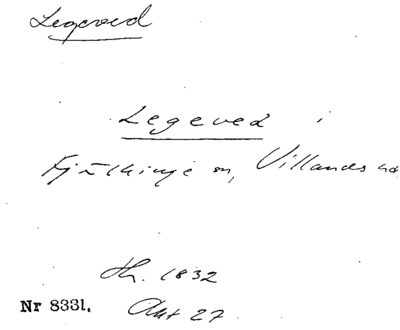 Legeved
Legeved i
Fjälkinge sn, Villands hd.
Th. 1832
Nr 8331. Akt 27